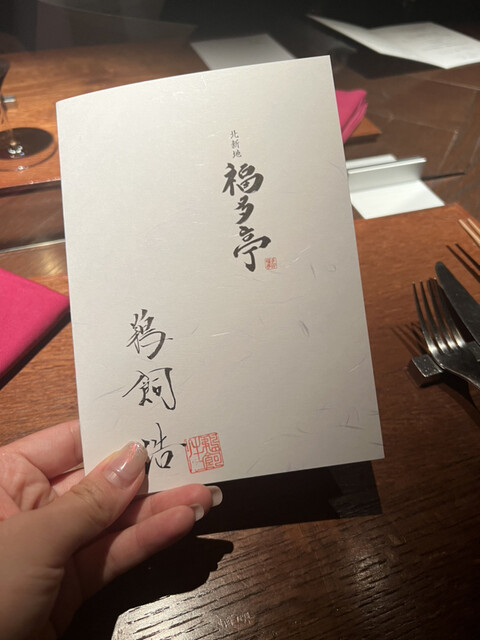 北新地
福多亭
鵜飼浩